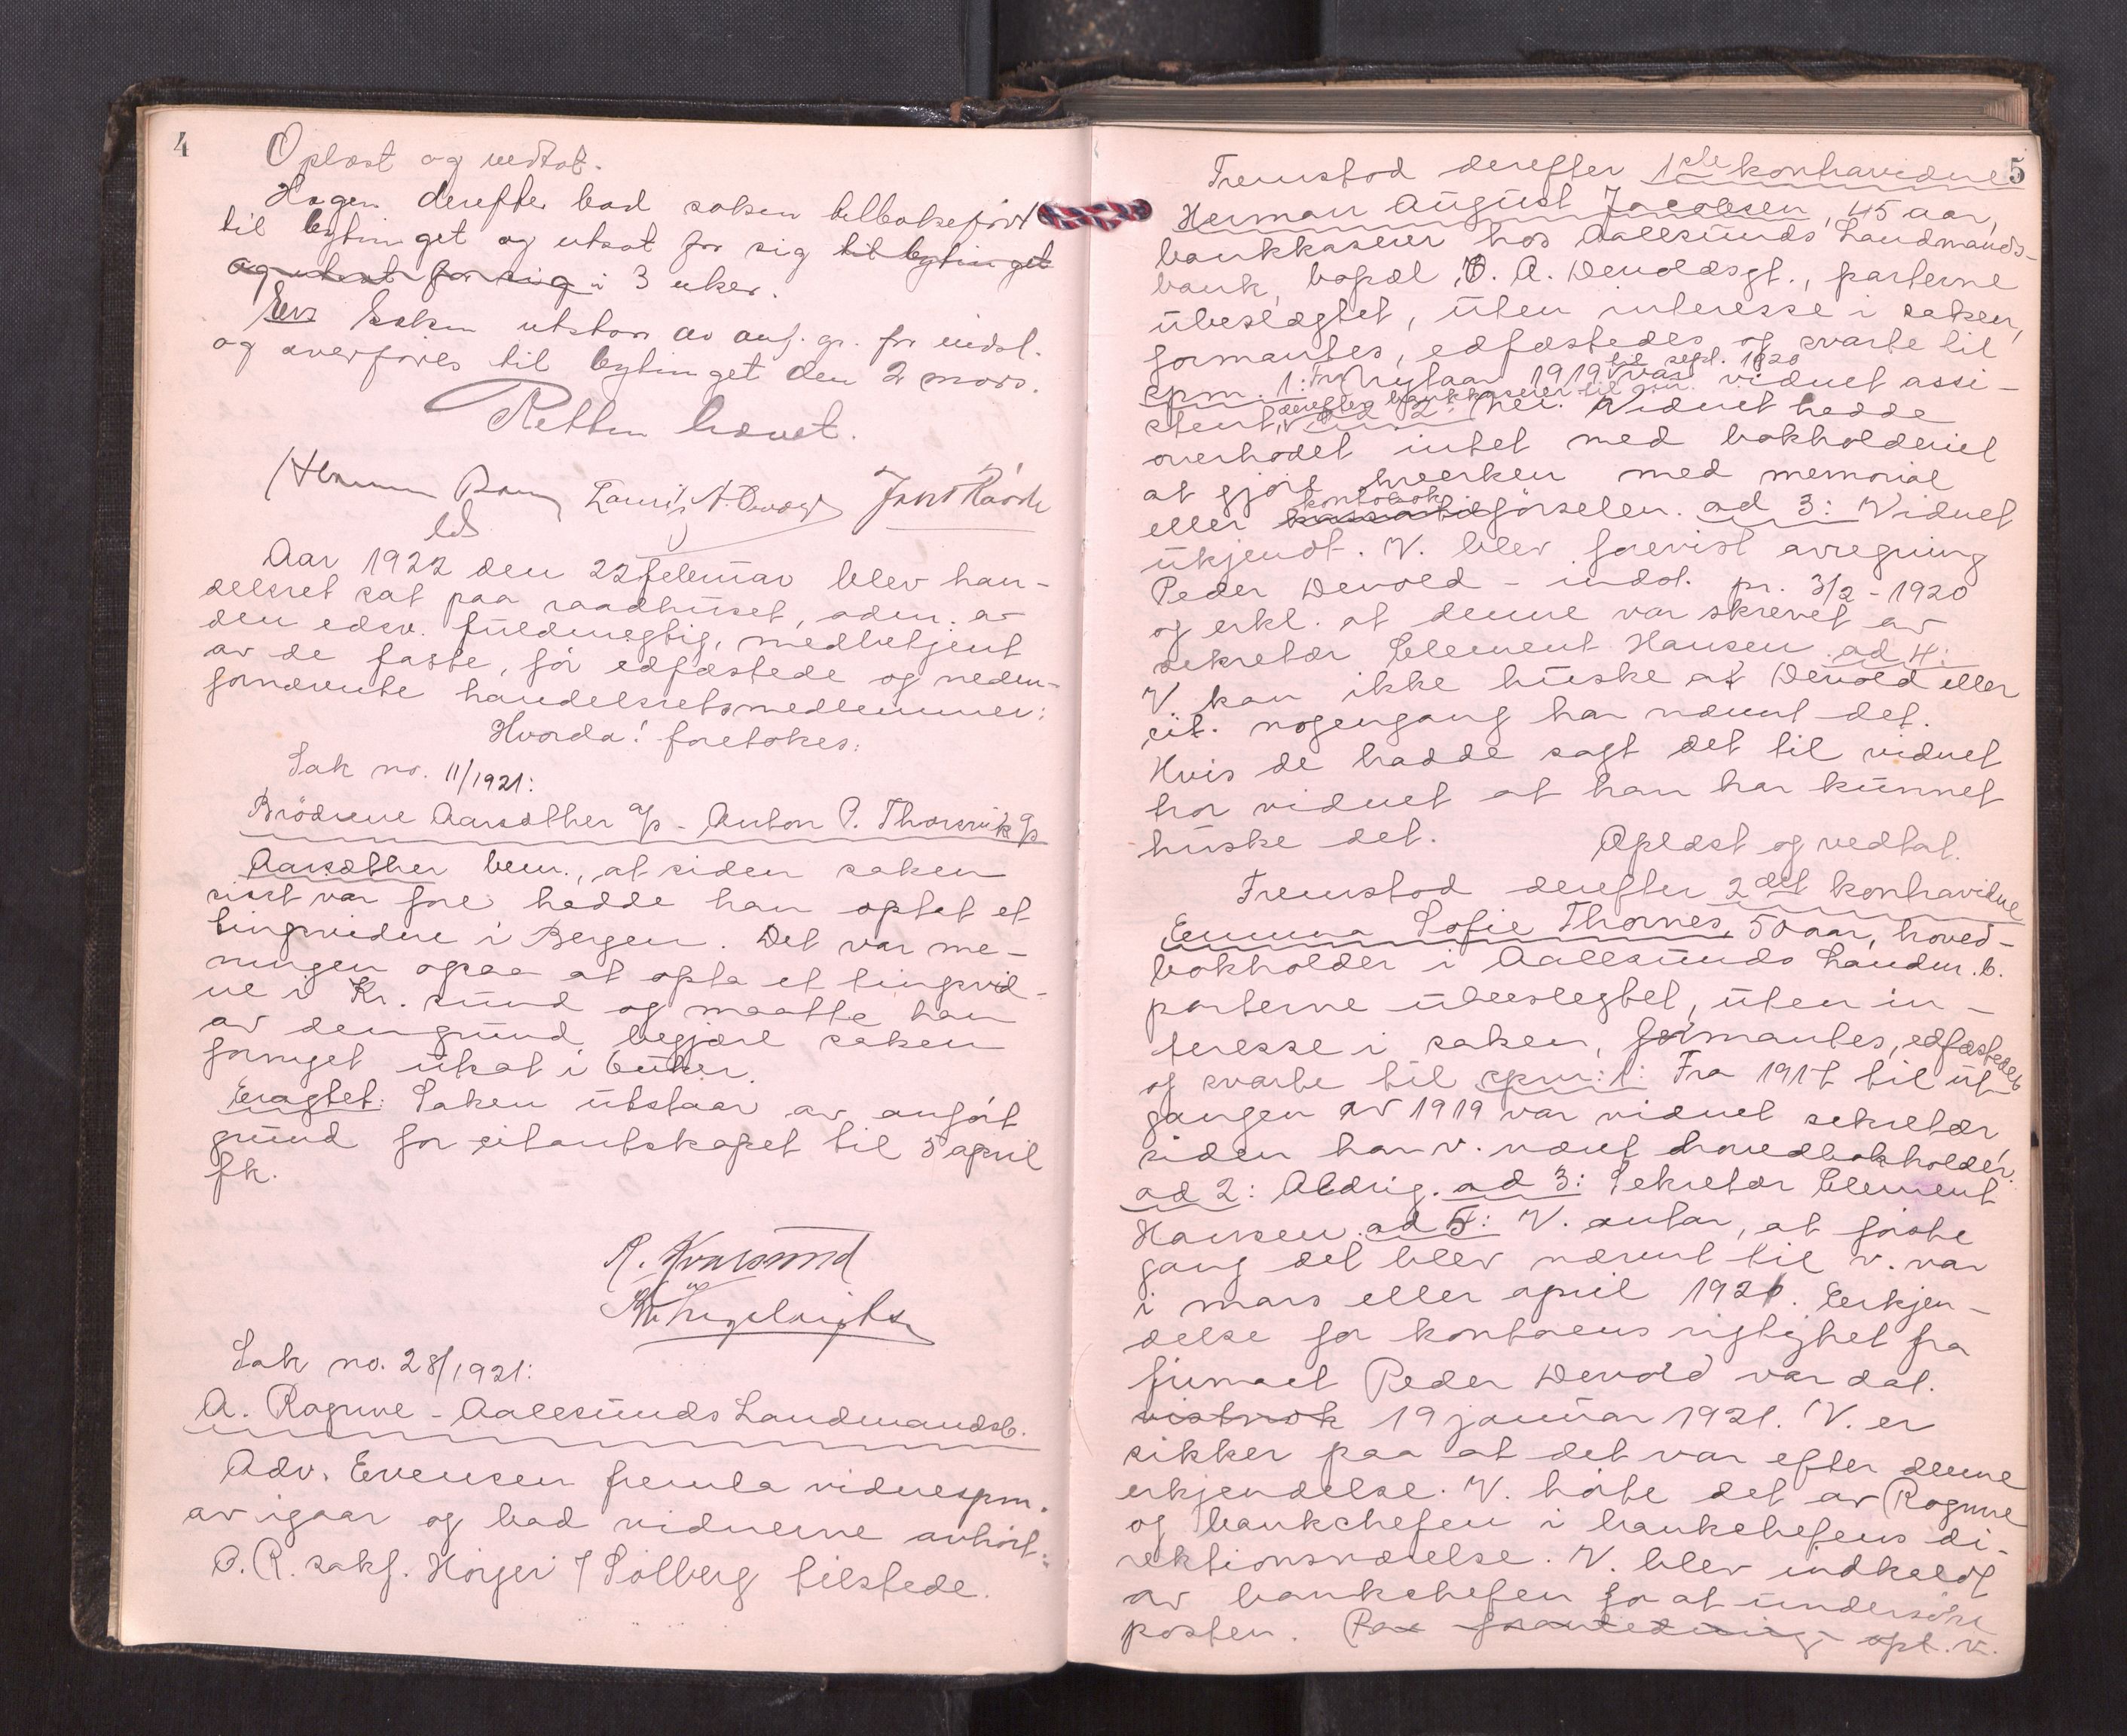 4
Oplæst og vedtat.
Hagen derefter bad saken tilbakeført
til bytinget og utsat for sig til bytinget
og utsat for sig i 3 uker.
Err Saken utstaar av anf. gr. for indst.
og overføres til bytinget den 2 mars.
Retten hævet.
Aar 1922 den 22 februar blev han-
delsret sat paa raadhuset, adm. av
den edsv. fuldmegtig, medbetjent
av de faste, før edfæstede og neden-
fornævnte handelsretsmedlemmer:
Hvorda! foretokes:
Sak no. 11/1921:
Brödrene Aarsæther a/s - Anton P. Thorsvik a/s
Aarsæther bem., at siden saken
sist var fore hadde han optat et
tingsvidne i Bergen. Det var me-
ningen ogsaa at opta et tingsvid-
ne i Kr. sund og maatte han
av den grund begjære saken
fornyet utsat i 6 uker.
Eragtet: Saken utstaar av anført
grund for citantskapet til 5 april
fk.
R. Kvarsund
Sak no. 28/1921:
A. Rogne - Aalesunds Landmandsb.
Adv. Evensen fremla vidnespm.
av igaar og bad vidnerne avhört.
O.R. sakf. Höyer / Solberg tilstede.
5
Fremstod derefter 1ste kontravidne
Herman August Jacobsen, 45 aar,
bankkaserer hos Aalesunds Landmands-
bank, bopæl O. A. Devoldsgt., parterne
ubeslægtet, uten interesse i saken,
formantes, edfæstedes og svarte til
til sept. 1920
spm. 1: Fra nytaar 1919 var vidnet assi-
derefter bankkaserer til
stent, ad 2: Nei. Vidnet hadde
overhodet intet med bokholderiet
at gjøre hverken med memorial
kontobok
eller förselen. ad 3: Vidnet
ukjendt. V. blev forevist avregning
Peder Devold - indst. pr. 3/2 - 1920
og erkl. at denne var skrevet av
sekretær Clement Hansen. ad 4:
V kan ikke huske at Devold eller
cit. nogengang har nævnt det.
Hvis de hadde sagt det til vidnet
tror vidnet at han har kunnet
huske det. Oplæst og vedtat.
Fremstod derefter 2det kontravidne
Emma Sofie Thornes, 50 aar, hoved-
bokholder i Aalesunds Landm.b.
parterne ubeslegtet, uten in-
teresse i saken, formantes, edfæstedes
og svarte til spm: 1: Fra 1917 til ut-
gangen av 1919 var vidnet sekretær,
siden har v. været hovedbokholder.
ad 2: Aldrig. ad 3: Sekretær Clement
Hansen. ad 4: V. antar, at første
gang det blev nævnt til v. var
i mars eller april 1921. Erkjen-
delse for kontoens rigtighet fra
firmaet Peder Devold var dat.
vistnok 19 januar 1921. V. er
sikker paa at det var efter denne
erkjendelse. V. hørte det av Rogne
og bankchefen i bankchefens di-
rektionsværelse. V. blev indkaldt
av bankchefen for at undersøke
posten. Paa foranledning opl. v.